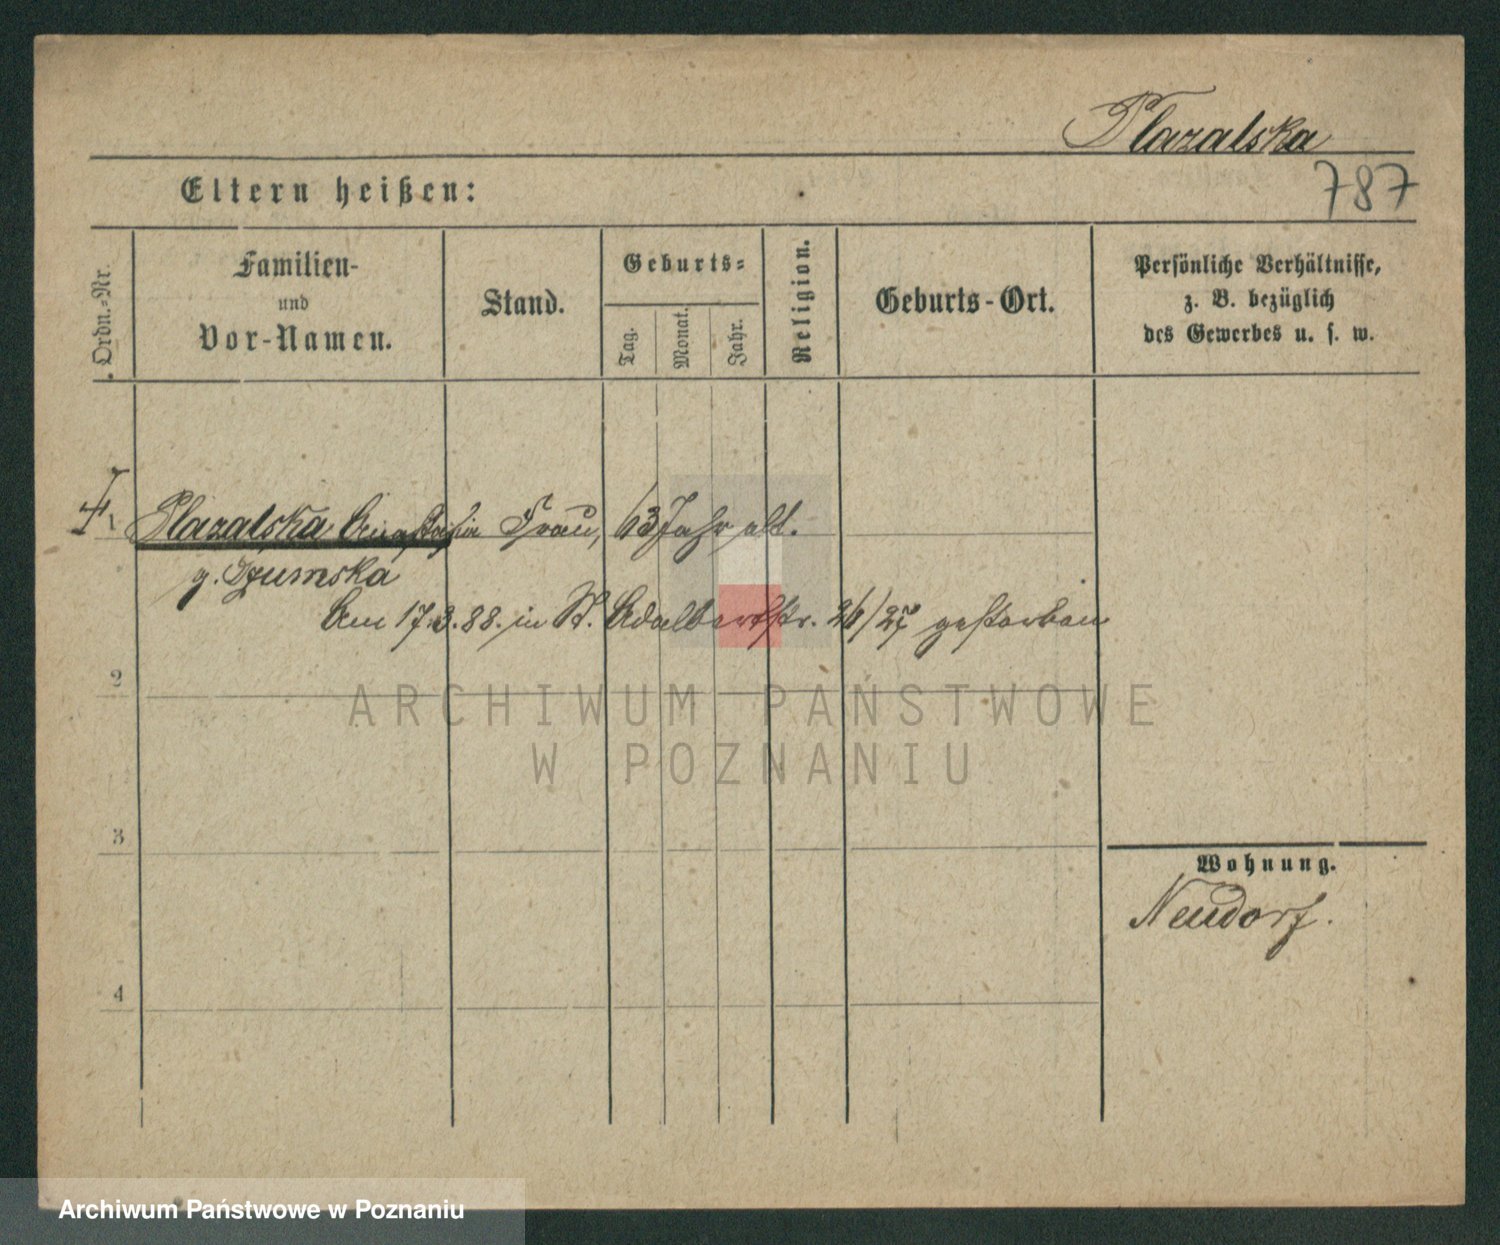 Plazalska
787
Eltern heißen:
Ordn.-Nr.
Familien-
und
Vor-Namen.
Stand.
Geburts-
Tag.
Monat.
Jahr.
Religion.
Geburts-Ort.
Persönliche Verhältnisse,
z. B. bezüglich
des Gewerbes u. s. w.
1 Plazalska Anastasia Frau, 63 Jahr alt.
g.
Am 17.3.88. in St. Adalbertstr. 26/27 gestorben
2
ARCHIWUM PAŃSTWOWE
W POZNANIU
3
Wohnung.
Neudorf.
4
Archiwum Państwowe w Poznaniu